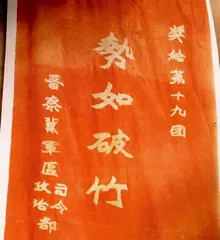 奖给第十九团
势如破竹
晋察冀军区司令
政治部